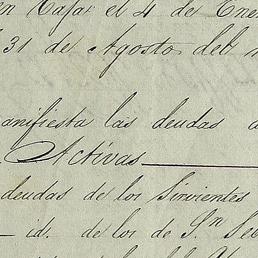 en Caja el 4 de Ene
31 de Agosto del
anifiesta las deudas
Activas
deudas de los Sirvientes
id. de los de Sn Seb